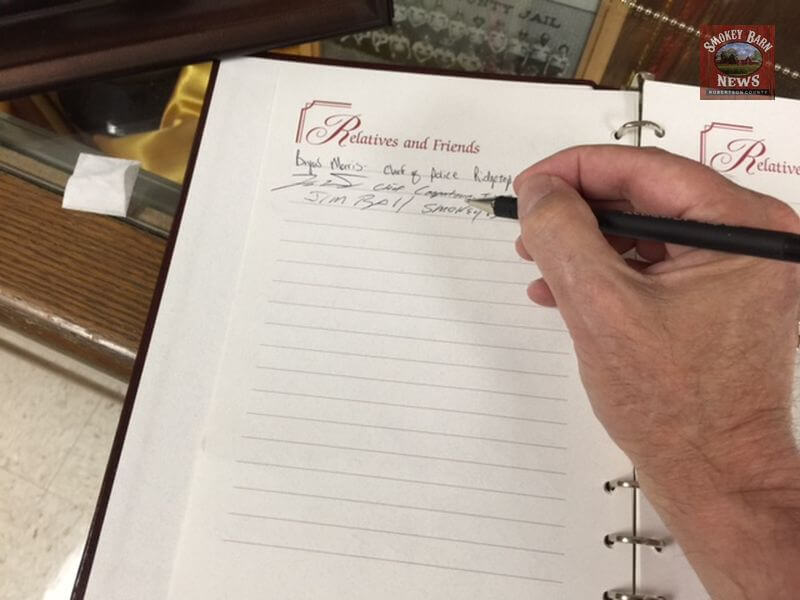 UNTY JAIL
SMOKEY BARN
NEWS
ROBERTSON COUNTY
Relatives and Friends
Relative
Bryan Morris: Chief of Police Ridgetop
Chief
JIM BALL SMOKEY